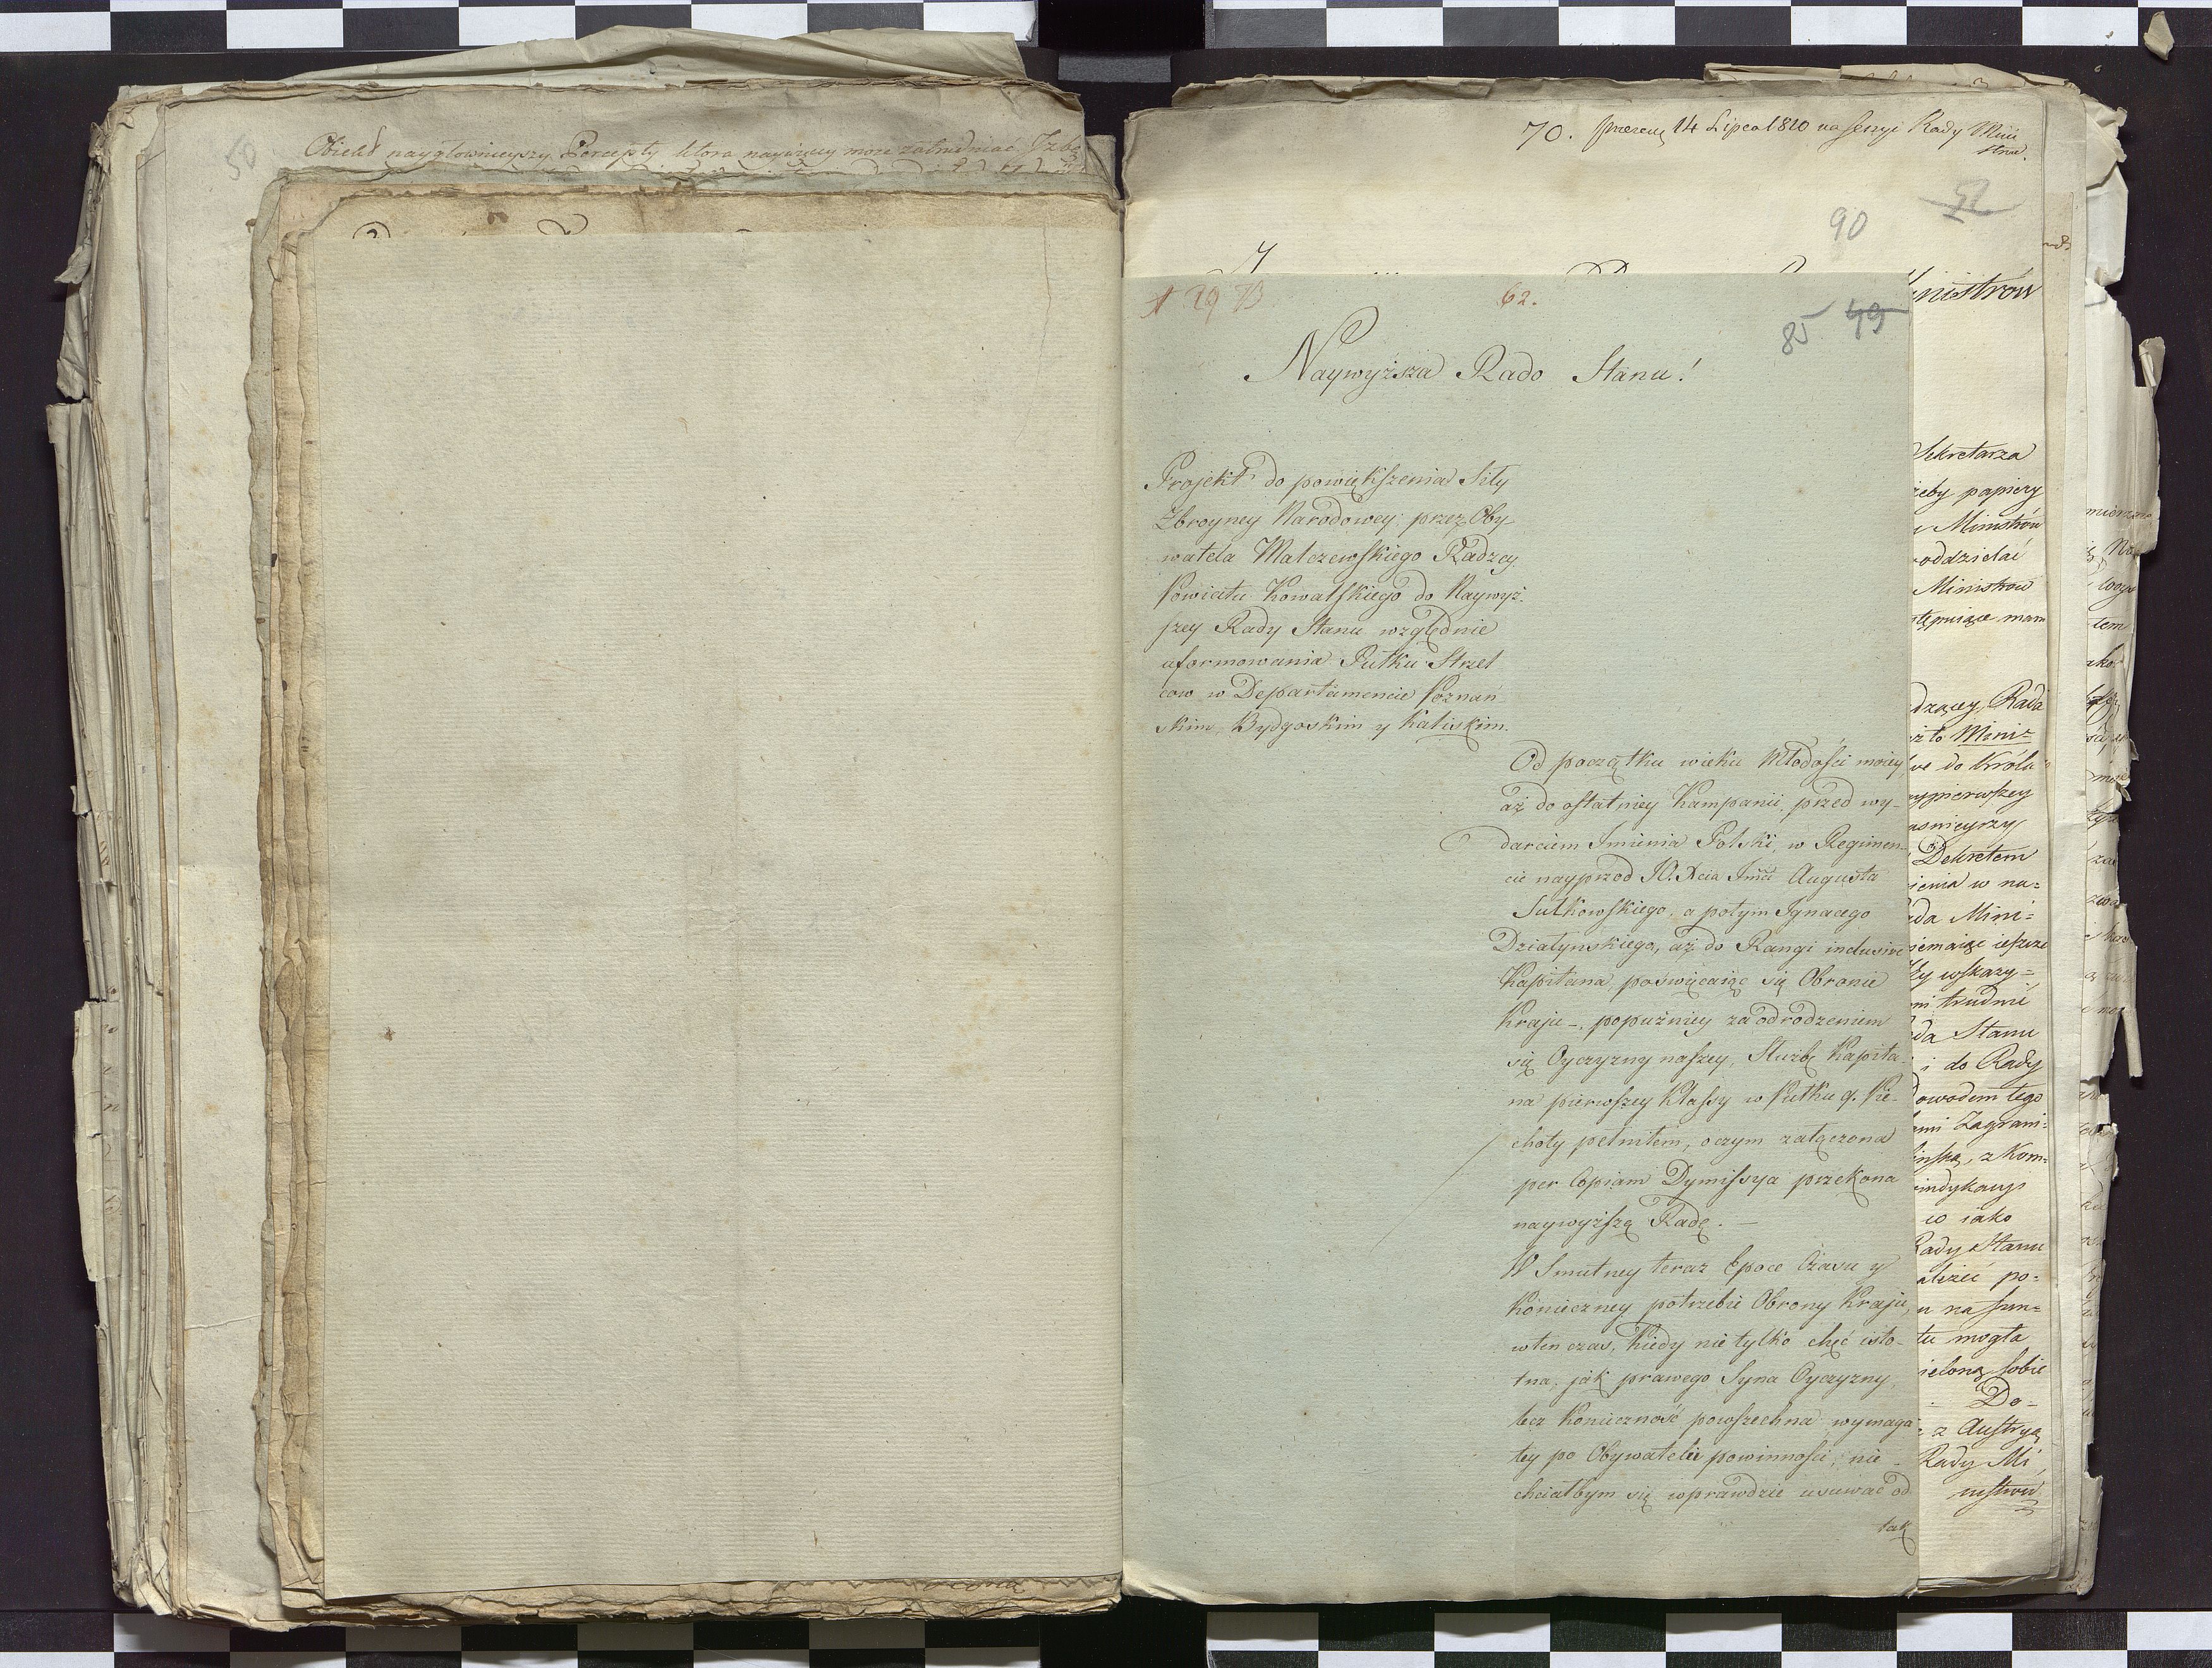 50
Obiekt naygłownieyszy Percepty ktora naywięcy może zatrudniać Izbę
70. 14 Lipca 1810 na sessyi Rady Mini
strow.
52
90
nistrów
A 29 B
62.
85 49
Naywyższa Rado Stanu!
Projekt do powiękſzenia Siły
Zbroyney Narodowey przez Oby-
watela Malczewſkiego Radzcy
Powiatu Kowalſkiego do Naywyż-
ſzey Rady Stanu względnie
uformowania Pułku Strzel
cow w Departamencie Poznań
skim, Bydgoskim y Kaliskim.
Od początku wieku Młodoſci moiey,
aż do oſtatniey Kampanii, przed wy-
darciem Imienia Polski, w Regimen-
cie nayprzod JO. Xcia Jmći Auguſta
Sułkowſkiego, a potym Ignacego
Działynskiego, aż do Rangi inclusive
Kapitana, poswięcaiąc się Obronie
Kraju -, popuźniey za odrodzeniem
się Oyczyzny naſzey, Służbę Kapita-
na pierwſzey Klaſsy w Pułku 9. Pie-
choty pełniłem, o czym załączona
per Copiam Dymiſsya przekona
naywyżſzą Radę. -
W Smutney teraz Epoce Czasu y
Konieczney potrzebie Obrony Kraju,
wten czas, Kiedy nie tylko chęć isto-
tna, jak prawego Syna Oyczyzny,
lecz Konieczność powſzechna wymaga
tey po Obywatelu powinnoſci, nie
chciałbym się wprawdzie usuwać od
tak
Sekretarza
żeby papiery
Ministrów
oddzielać
Ministrów
mam
dzący Rada
to Mini=
do Króla
ypierwſzey
asnieyszy
Dekretem
ienia w na=
da Mini=
iemaiąc ieſzcze
wſkazy=
trudnić
da Stanu
i do Rady
owodem tego
Zagrani=
z Kom=
indykacyi
co iako
Rady Stanu
po=
na fun=
tu mogła
ieloną ſobie
Do-
z Auſtryą
Rady Mi
nistrów